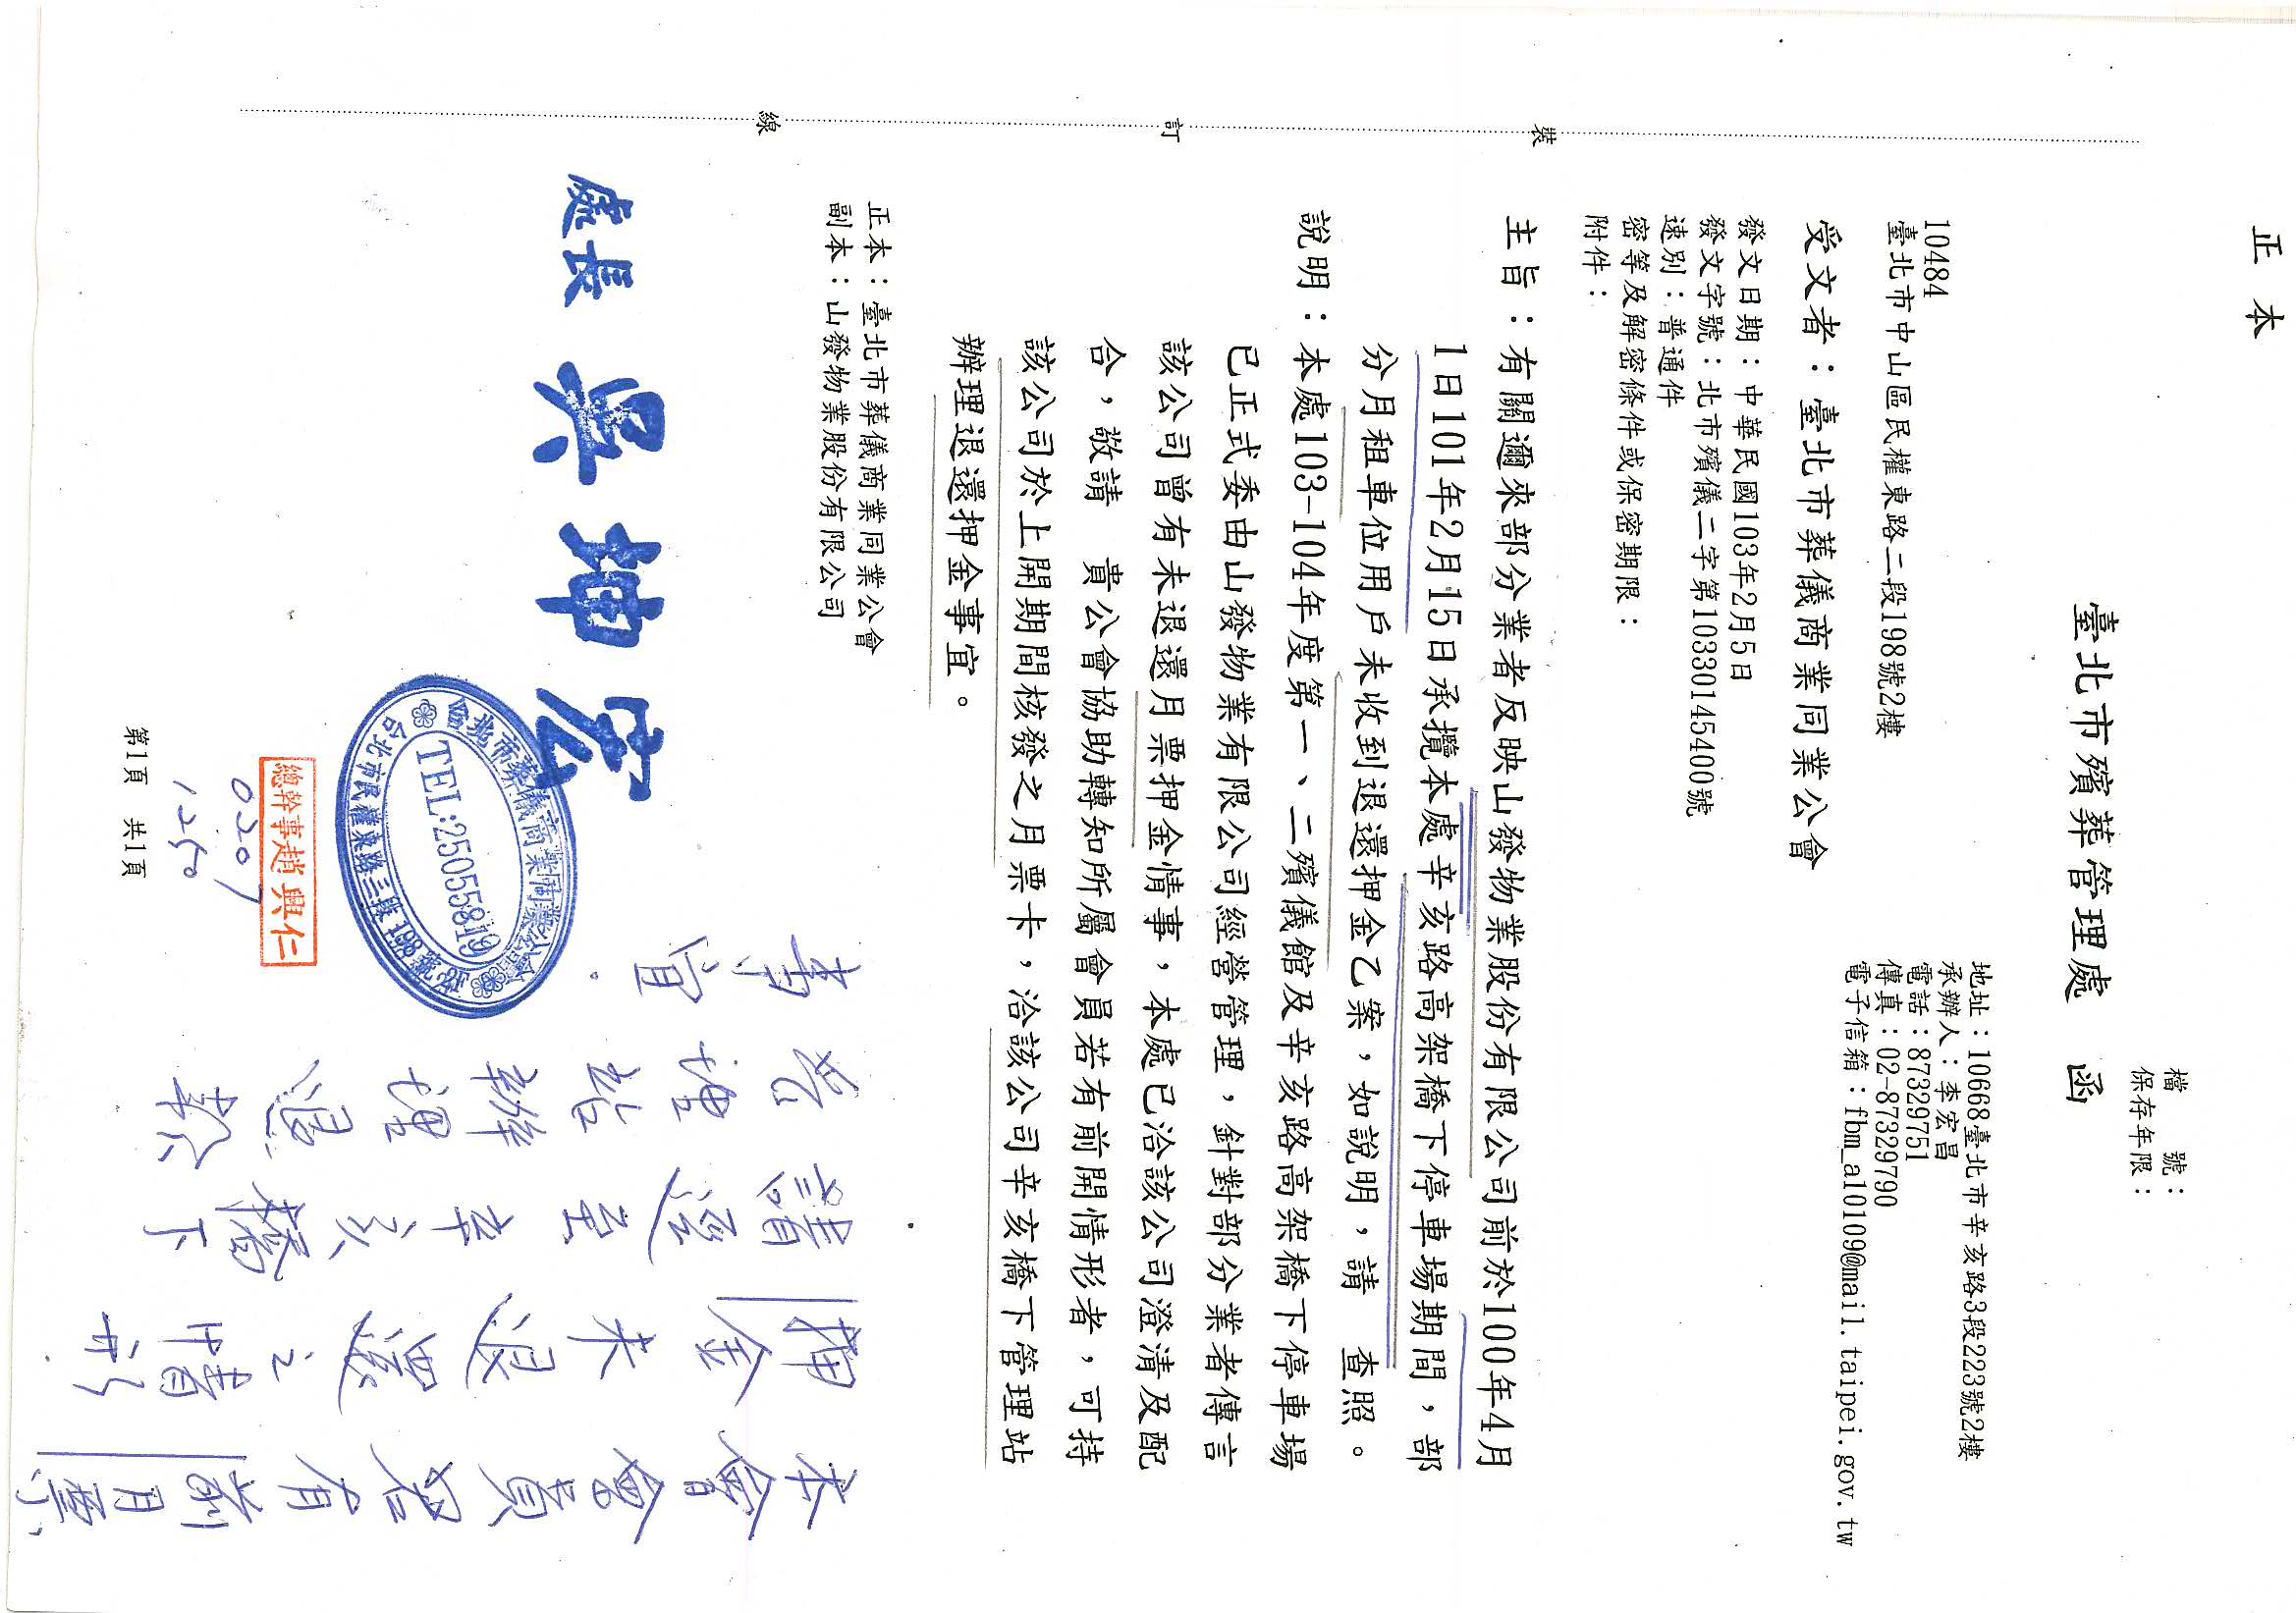 正本
檔　　號：
保存年限：
臺北市殯葬管理處　函
地址：10668臺北市辛亥路3段223號2樓
承辦人：李宏昌
電話：87329751
傳真：02-87329790
電子信箱：fbm_a10109@mail.taipei.gov.tw
10484
臺北市中山區民權東路二段198號2樓
受文者：臺北市葬儀商業同業公會
發文日期：中華民國103年2月5日
發文字號：北市殯儀二字第10330145400號
速別：普通件
密等及解密條件或保密期限：
附件：
主旨：有關邇來部分業者反映山發物業股份有限公司前於100年4月
1日101年2月15日承攬本處辛亥路高架橋下停車場期間，部
分月租車位用戶未收到退還押金乙案，如說明，請　查照。
說明：本處103-104年度第一、二殯儀館及辛亥路高架橋下停車場
已正式委由山發物業有限公司經營管理，針對部分業者傳言
該公司曾有未退還月票押金情事，本處已洽該公司澄清及配
合，敬請　貴公會協助轉知所屬會員若有前開情形者，可持
該公司於上開期間核發之月票卡，洽該公司辛亥橋下管理站
辦理退還押金事宜。
正本：臺北市葬儀商業同業公會
副本：山發物業股份有限公司
處長 吳坤宏
台北市葬儀商業同業公會
TEL:25055819
台北市民權東路二段198號2F
總幹事趙興仁
0207
1250
本會會員若有前月票
押金未退還之情形
請逕至辛亥橋下
管理站辦理退款
事宜.
第1頁　共1頁
裝
訂
線